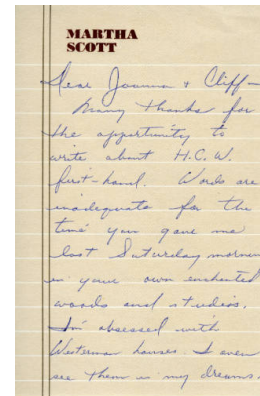 MARTHA
SCOTT
Dear Joanna + Cliff—
Many thanks for
the opportunity to
write about H.C.W.
first-hand. Words are
inadequate for the
time you gave me
last Saturday morning
in your own enchanted
woods and studios.
I'm obsessed with
Westerman houses. I even
see them in my dreams.